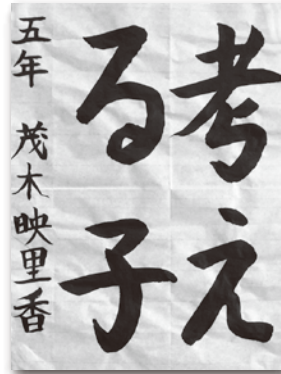 考え
る子
五年 茂木映里香